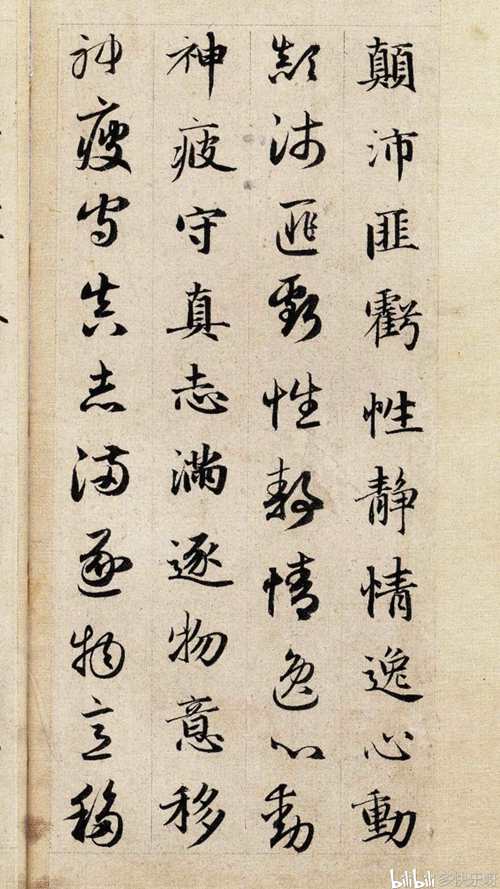 顛沛匪虧性静情逸心動
顛沛匪虧性静情逸心動
神疲守真志滿逐物意移
神疲守真志滿逐物意移
bilibili